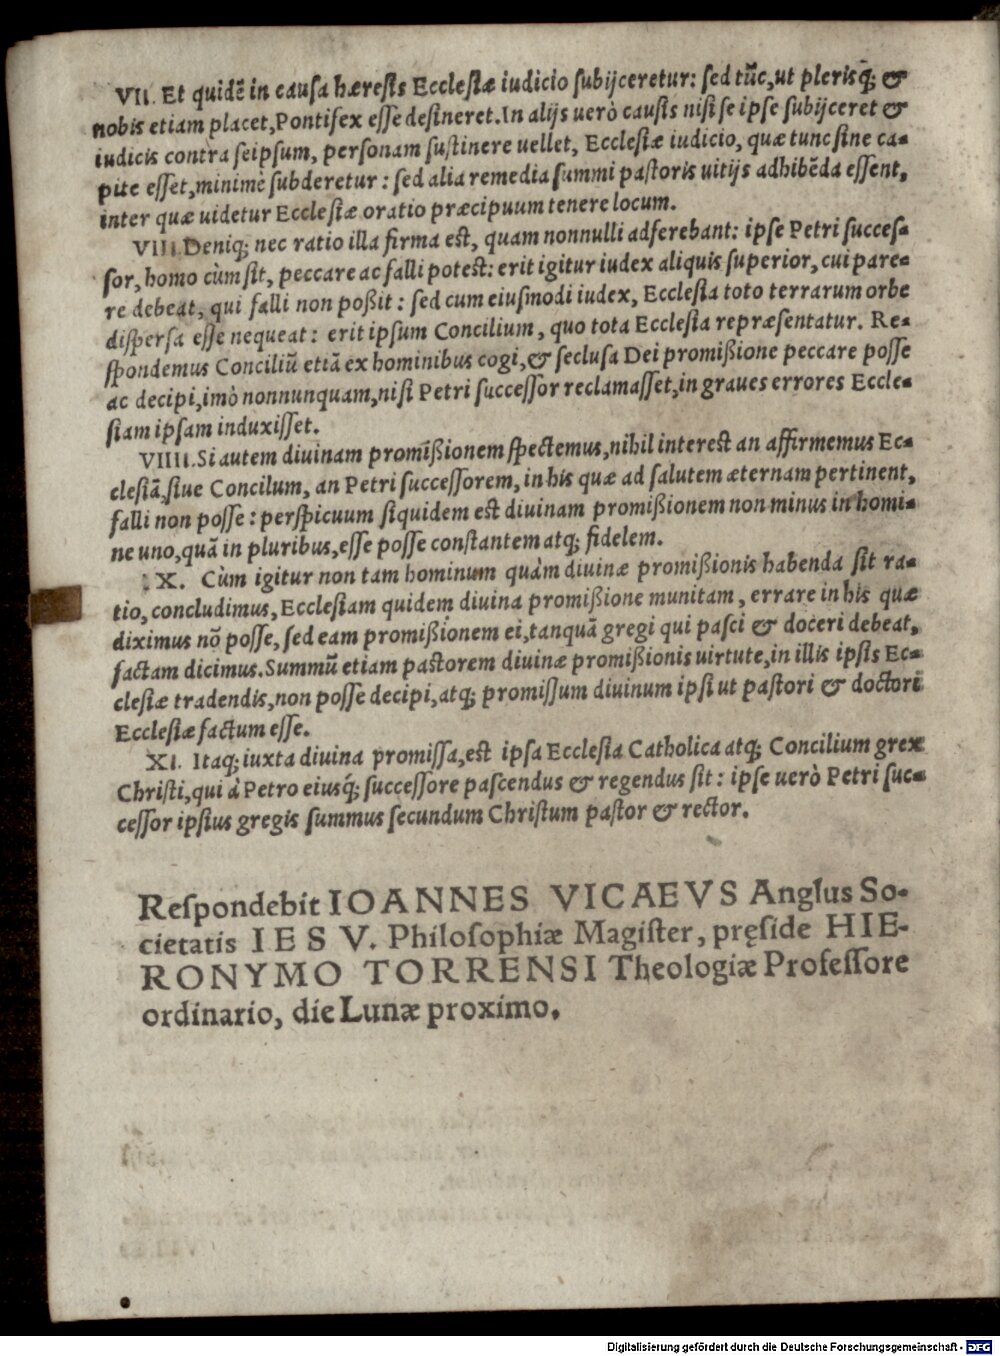 VII. Et quidē in causa hæresis Ecclesiæ iudicio subijceretur: sed tūc, ut plerisq́; &
nobis etiam placet, Pontifex esse desineret. In alijs uerò causis nisi se ipse subijceret &
iudicis contra seipsum, personam sustinere uellet, Ecclesiæ iudicio, quæ tunc sine ca-
pite esset, minimè subderetur: sed alia remedia summi pastoris uitijs adhibēda essent,
inter quæ uidetur Ecclesiæ oratio præcipuum tenere locum.
VIII. Deniq; nec ratio illa firma est, quam nonnulli adferebant: ipse Petri succes-
sor, homo cùm sit, peccare ac falli potest: erit igitur iudex aliquis superior, cui pare-
re debeat, qui falli non poßit: sed cum eiusmodi iudex, Ecclesia toto terrarum orbe
dispersa esse nequeat: erit ipsum Concilium, quo tota Ecclesia repræsentatur. Re-
spondemus Conciliū etiā ex hominibus cogi, & seclusa Dei promißione peccare posse
ac decipi, imò nonnunquam, nisi Petri successor reclamasset, in graues errores Eccle-
siam ipsam induxisset.
VIIII. Si autem diuinam promißionem spectemus, nihil interest an affirmemus Ec-
clesiā, siue Concilum, an Petri successorem, in his quæ ad salutem æternam pertinent,
falli non posse: perspicuum siquidem est diuinam promißionem non minus in homi-
ne uno, quā in pluribus, esse posse constantem atq; fidelem.
X. Cùm igitur non tam hominum quàm diuinæ promißionis habenda sit ra-
tio, concludimus, Ecclesiam quidem diuina promißione munitam, errare in his quæ
diximus nō posse, sed eam promißionem ei, tanquā gregi qui pasci & doceri debeat,
factam dicimus. Summū etiam pastorem diuinæ promißionis uirtute, in illis ipsis Ec-
clesiæ tradendis, non posse decipi, atq; promissum diuinum ipsi ut pastori & doctori
Ecclesiæ factum esse.
XI. Itaq; iuxta diuina promissa, est ipsa Ecclesia Catholica atq; Concilium grex
Christi, qui à Petro eiusq́; successore pascendus & regendus sit: ipse uerò Petri suc-
cessor ipsius gregis summus secundum Christum pastor & rector.
Respondebit IOANNES VICAEVS Anglus So-
cietatis IESV. Philosophiæ Magister, pręside HIE-
RONYMO TORRENSI Theologiæ Professore
ordinario, die Lunæ proximo.
Digitalisierung gefördert durch die Deutsche Forschungsgemeinschaft - DFG